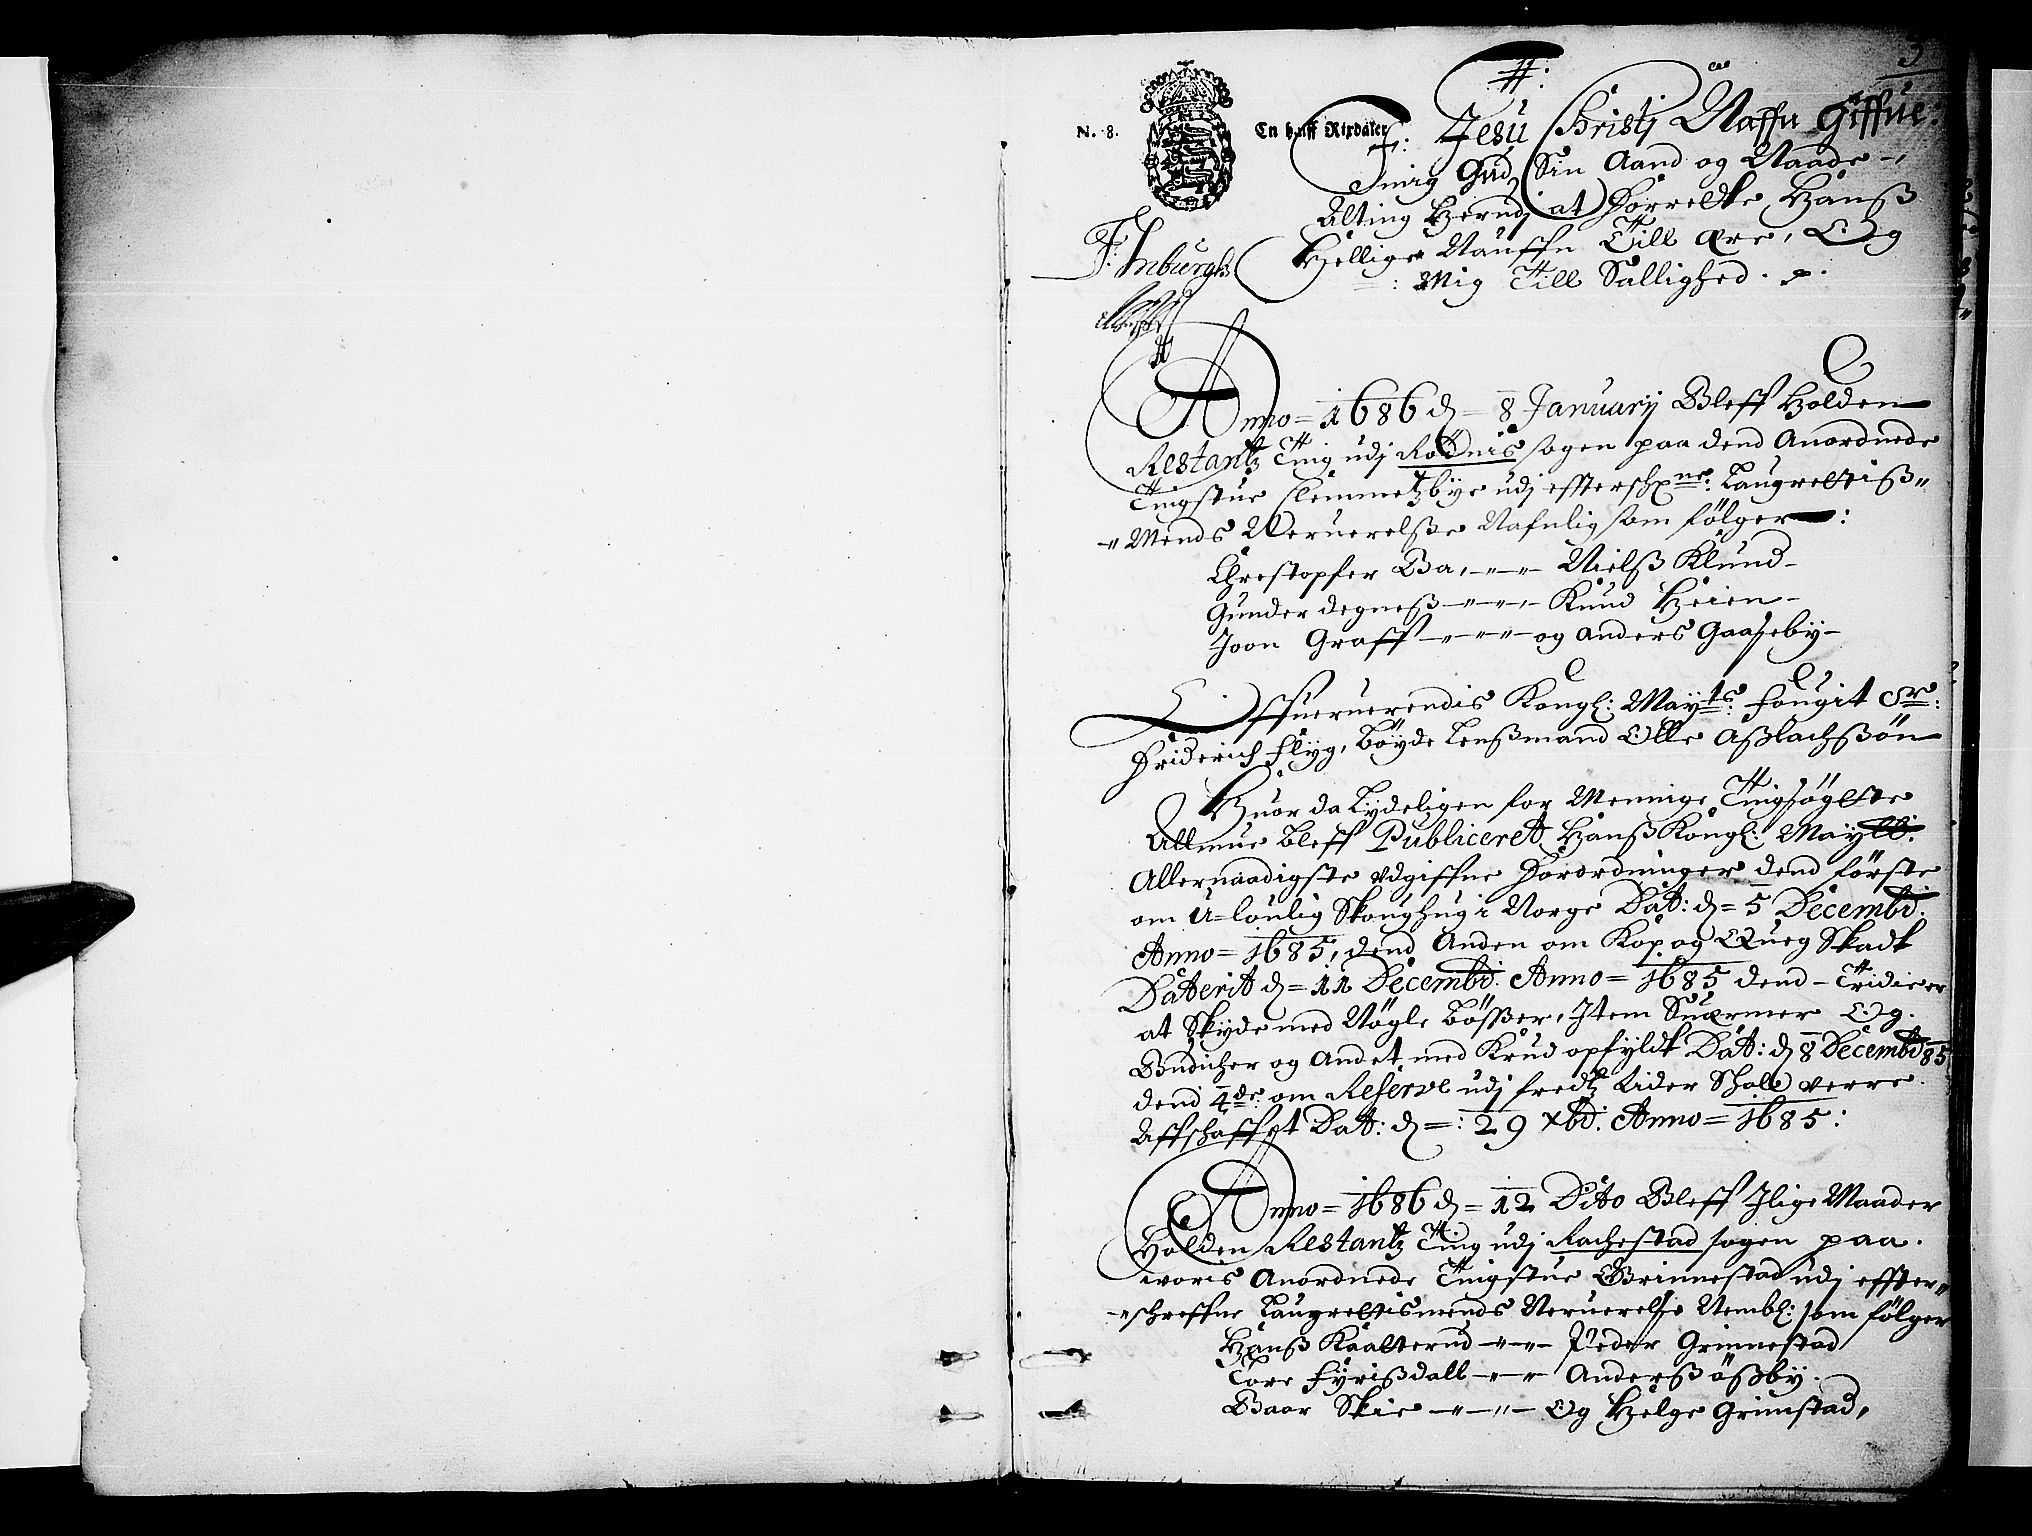 3
N. 8. En halff Rixdaler
J: Jesu Christj Naffn Giffue:
mig Gud Sin Aand og Naade,
Alting Herudj at Forrette Hanß
Hellige Nauffn Till Ære, Og
: Mig Till Sallighed.
Anno = 1686 d = 8 January Bleff Holden
Restantz Ting udj Rødnis sogen paa dend Anordnede
Tingstue Klemmetzbye udj efftersch ne: Laugrettiß
Mends Neruerelße Nafnlig som følger:
Chrestopfer Ba, Nielß Klund
Gunder degneß Knud Heien
Joon Graff og Anders Gaaseby
Offueruerendis Kongl: Mayts: fougit Sr:
Friderich Flyg, Böyde Lenßmand Olle Aßlachßön
Huor da Lydeligen for Mennige Tingsøgte
Allmue bleff Publiceret Hanß Kongl: Maytt:
Allernaadigste udgiffne Forordninger dend første
om U=loulig Skoughug i Norge Dat: d = 5 Decembr:
Anno = 1685, dend Anden om Kop og Queg Skadt
Daterit d = 11 Decembr: Anno = 1685 dend Tridie er
at Skyde med Nøgle bößer, Item Suermer Og
Budicher og Andet med Krud opfyldt Dat: d 8 Decembr 85
dend 4de om Reserve udj fredtz tider Skole verre
Affschaffet Dat: d =: 29 xbr: Anno = 1685:
Anno = 1686 d = 12 Dito Bleff Jlige Maader
Holden Restantz Ting udj Rachestad sogen paa
woris Anordnede Tingstue Grinnestad udj effter
schreffne Laugrettismends Neruerelse Nembl: som følger
Hanß Kaalterud Peder Grinnestad
Tore Fyrißdall Anderß ößby
Baar Skie Og Helge Grimstad,